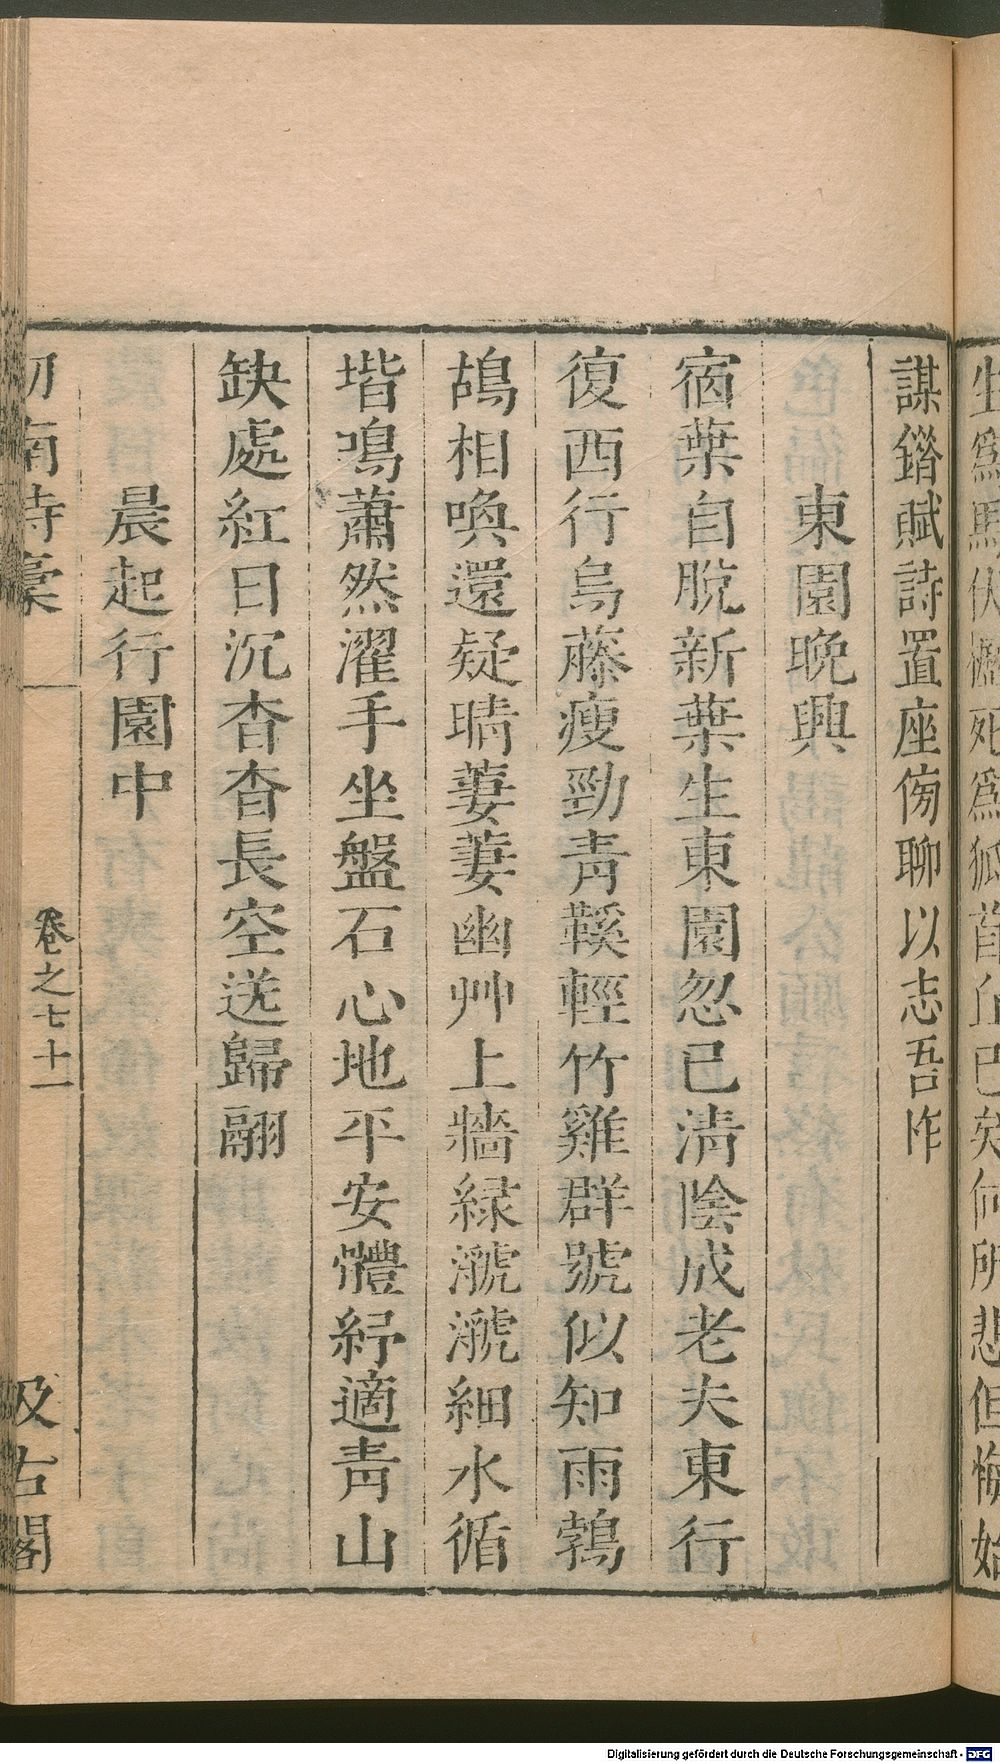 生爲馬伏櫪死爲狐首丘已矣何所悲但悔始
謀鐕賦詩置座傍聊以志吾怍
東園晚興
宿葉自脫新葉生東園忽已淸陰成老夫東行
復西行烏藤瘦勁靑鞵輕竹雞群號似知雨鵓
鴣相喚還疑晴萋萋幽艸上牆綠㶁㶁細水循
堦鳴蕭然濯手坐盤石心地平安體紓適靑山
缺處紅日沉杳杳長空送歸翮
晨起行園中
劒南詩稾
卷之七十一
汲古閣
Digitalisierung gefördert durch die Deutsche Forschungsgemeinschaft - DFG